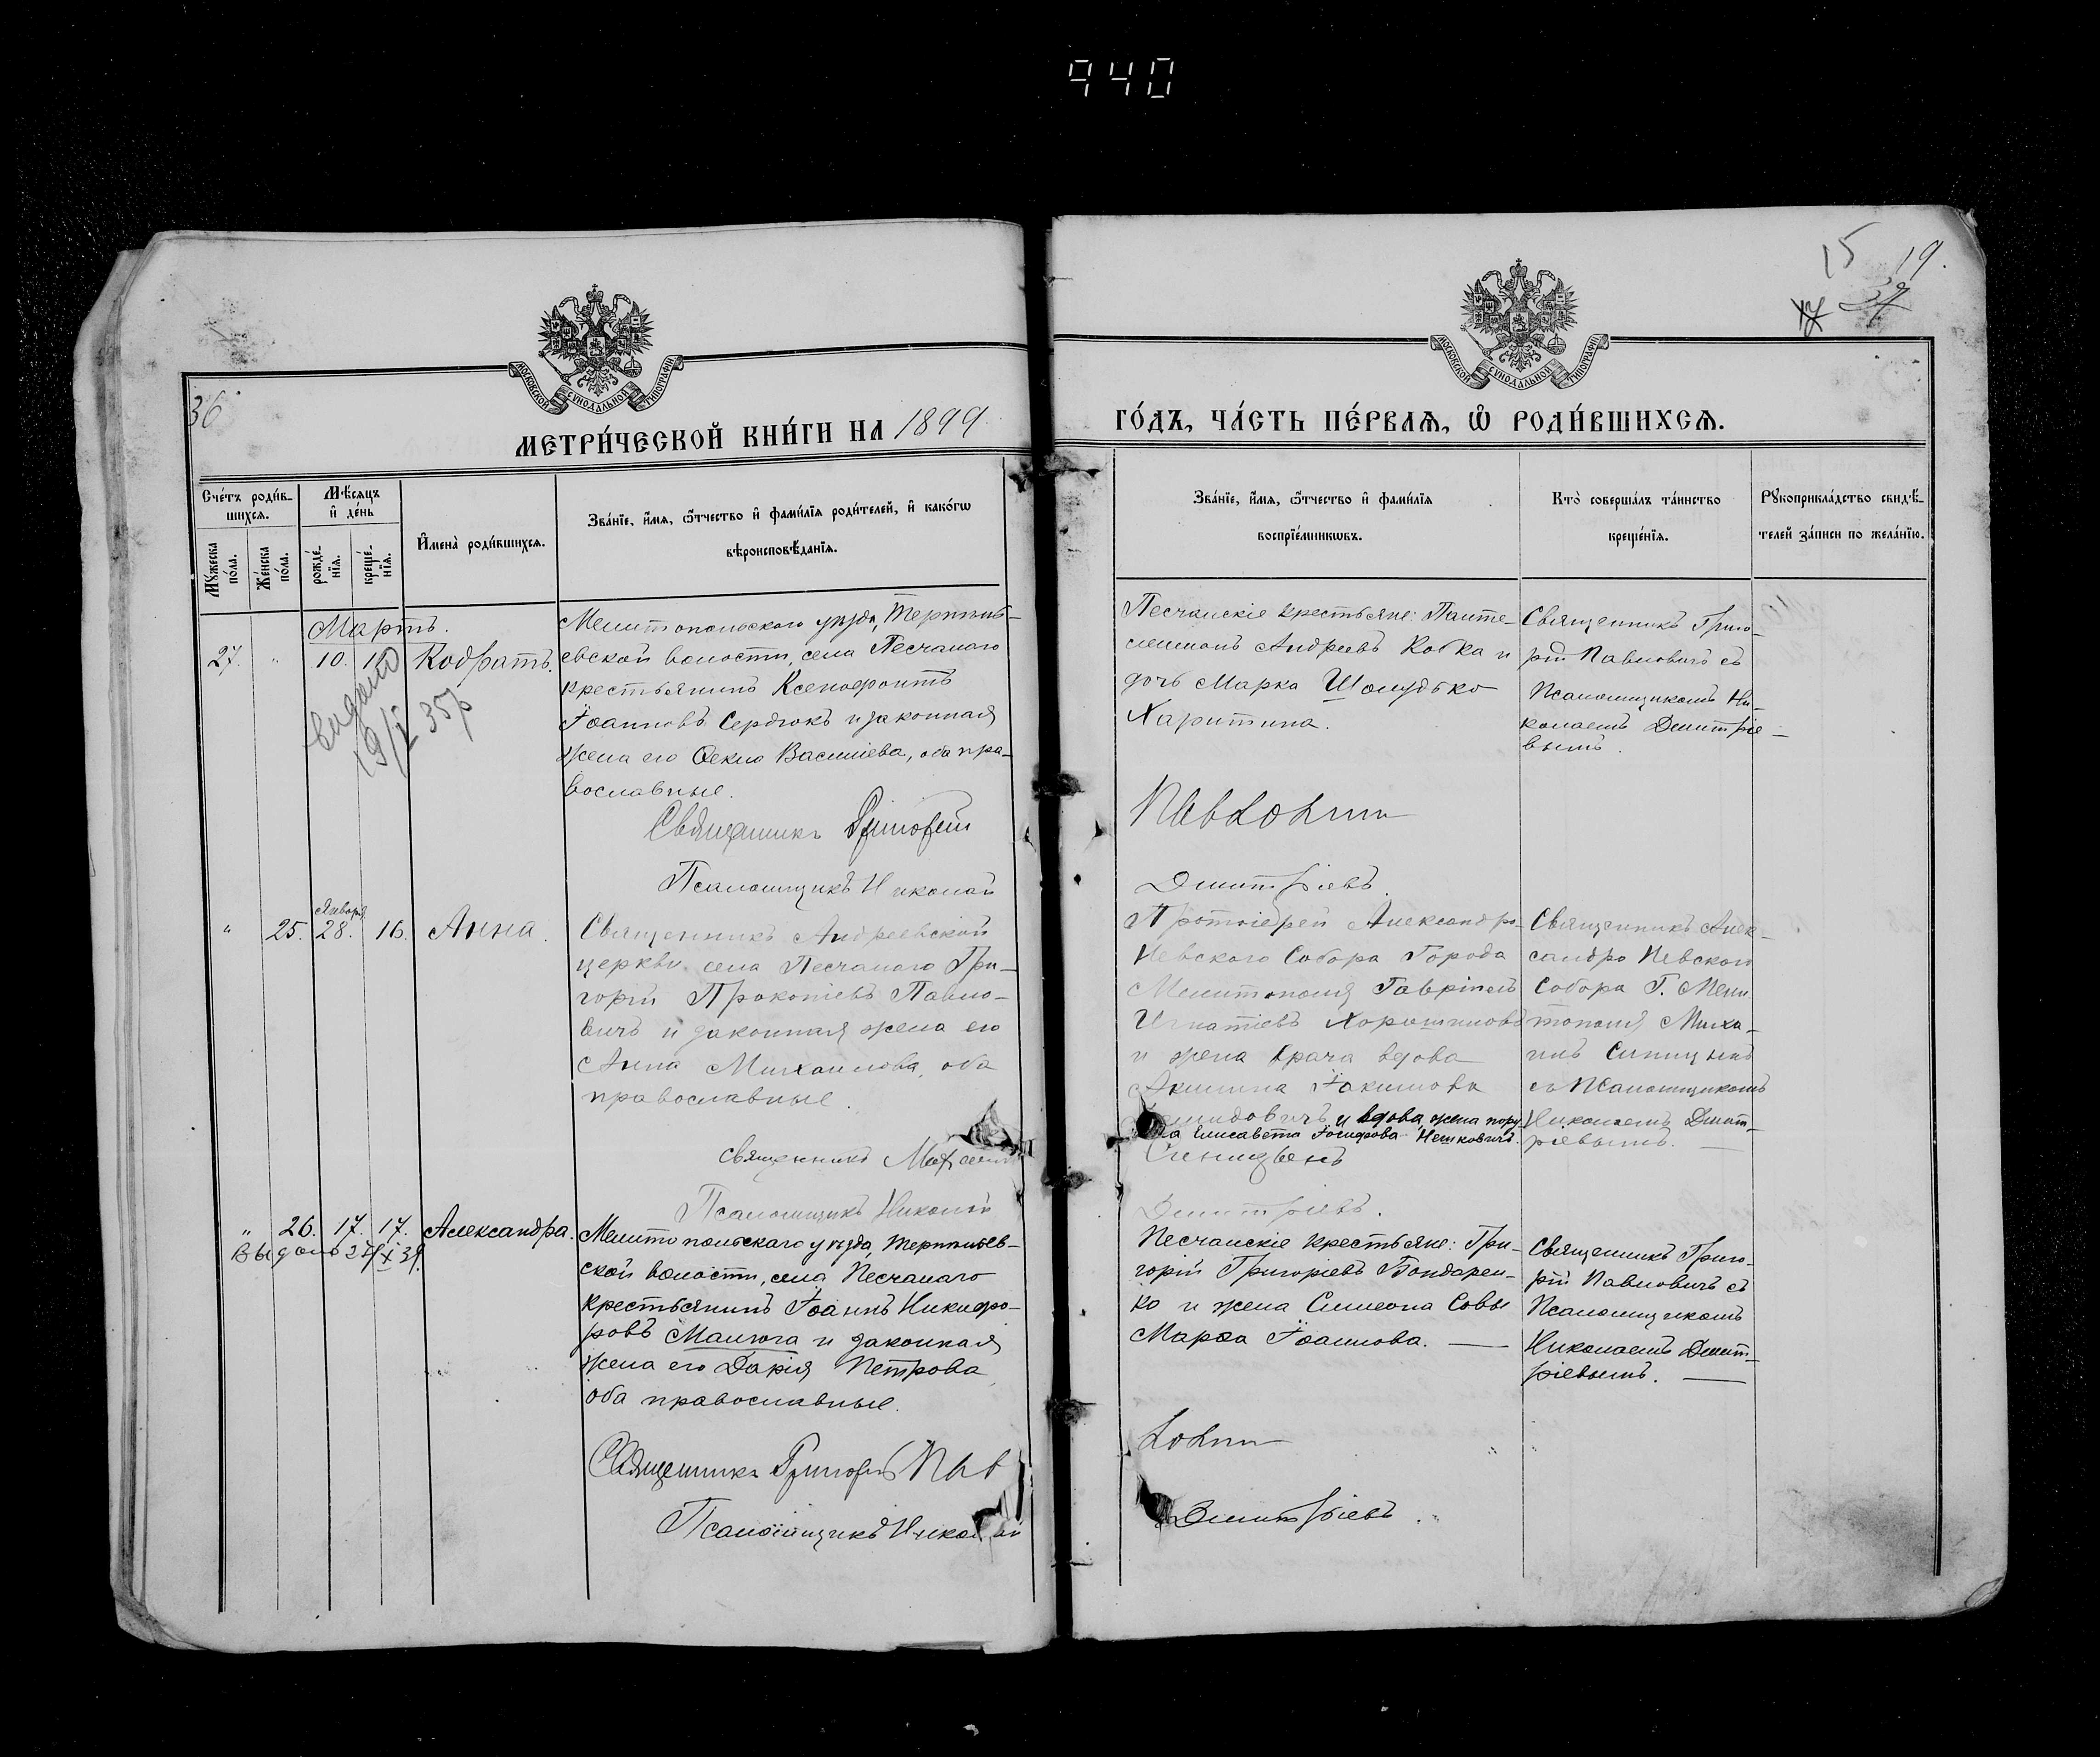 940
15 19.
17 37
36
МОСКОВСКОЙ СѴНОДАЛЬНОЙ ТИПОГРАФІИ
МОСКОВСКОЙ СѴНОДАЛЬНОЙ ТИПОГРАФІИ
МЕТРИ́ЧЕСКОЙ КНИ́ГИ НА 1899
ГО́ДЪ, ЧА́СТЬ ПЕ́РВАѦ, Ѡ РОДИ́ВШИХСѦ.
Сче́тъ роди́в-
шихсѧ.
Мѣ́сѧцъ
и де́нь
Мꙋ́жеска по́ла.
Же́нска по́ла.
рожде́-
нїѧ.
креще́-
нїѧ.
Имена̀ роди́вшихсѧ.
Зва́нїе, и́мѧ, ѻ́тчество и фами́лїѧ роди́телей, и како́гѡ
вѣроисповѣ́данїѧ.
Зва́нїе, и́мѧ, ѻ́тчество и фами́лїѧ
воспрїе́мникѡвъ.
Кто̀ соверша́лъ та́инство
креще́нїѧ.
Рꙋкоприкла́дство свидѣ́-
телей за́писи по жела́нїю.
Мартъ.
27. " 10. Кодратъ.
выдано
19/I 35 р
Мелитопольского уѣзда, Терпѣнь-
евской волости, села Песчанаго
крестьянинъ Ксенофонтъ
Іоанновъ Сердюкъ и законная
жена его Ѳекла Васильева, оба пра-
вославные.
Священникъ Григорій
Псаломщикъ Николай
Песчанскіе крестьяне: Панте-
леимонъ Андреевъ Кобка и
дочь Марка Шолудько
Харитина.
Павлович
Дмитріевъ.
Священникъ Григо-
рій Павловичъ съ
Псаломщикомъ Ни-
колаемъ Дмитріе-
вымъ.
Января
" 25. 28. 16. Анна.
Священникъ Андреевской
церкви села Песчанаго Гри-
горій Прокопіевъ Павло-
вичъ и законная жена его
Анна Михаилова, оба
православные.
Священникъ Михаилъ
Псаломщикъ Николай
Протоіерей Александро-
Невского Собора Города
Мелитополя Гавріилъ
Игнатіевъ
и жена врача вдова
Акилина Іакимова
и вдова, жена пору
Елисавета Іосифова
Синицынъ
Дмитріевъ.
Священникъ Алек-
сандро Невского
Собора Г. Мели
тополя Миха-
илъ Синицынъ
съ Псаломщикомъ
Николаемъ Дмит-
ріевымъ.
" 26. 17. 17. Александра.
Выдано 39.
Мелитопольскаго уѣзда, Терпѣньев-
ской волости, села Песчанаго
крестьянинъ Іоаннъ Никифо-
ровъ Малюга и законная
жена его Дарія Петрова
оба православные.
Священникъ Григорій Пав
Псаломщикъ Николай
Песчанскіе крестьяне: Гри-
горій Григоріевъ Бондарен-
ко и жена Симеона Совы
Марѳа Іоаннова.
лович
Дмитріевъ.
Священникъ Григо-
рій Павловичъ съ
Псаломщикомъ
Николаемъ Дмит-
ріевымъ.